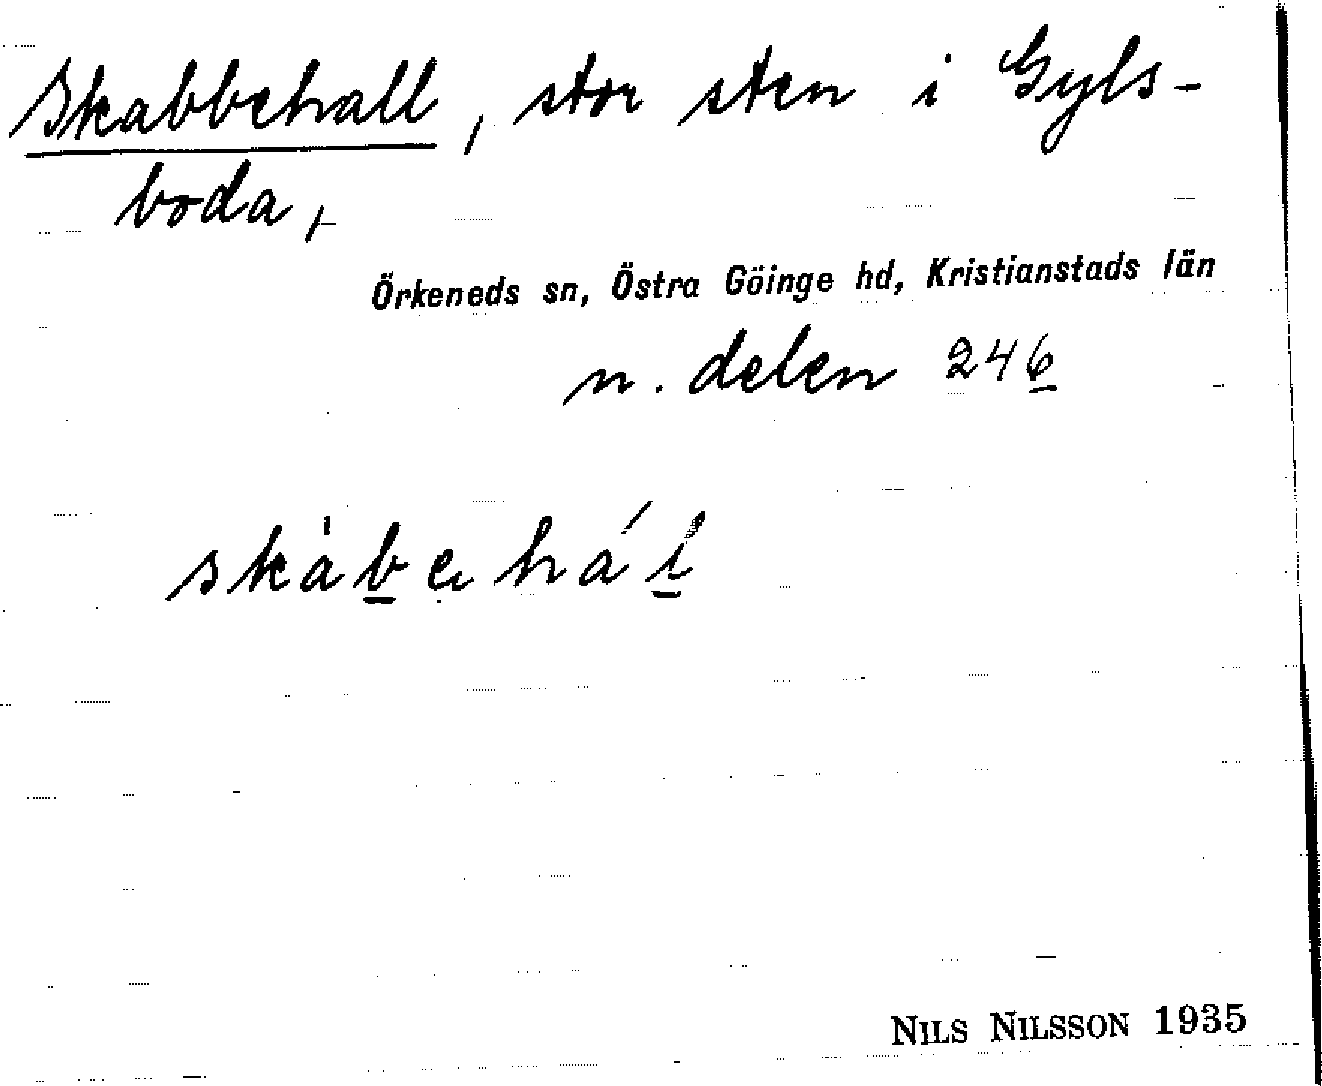 Skabbehall, stor sten i Gyls-
boda,
Örkeneds sn, Östra Göinge hd, Kristianstads län
n. delen 246
skàbehál
NILS NILSSON 1935